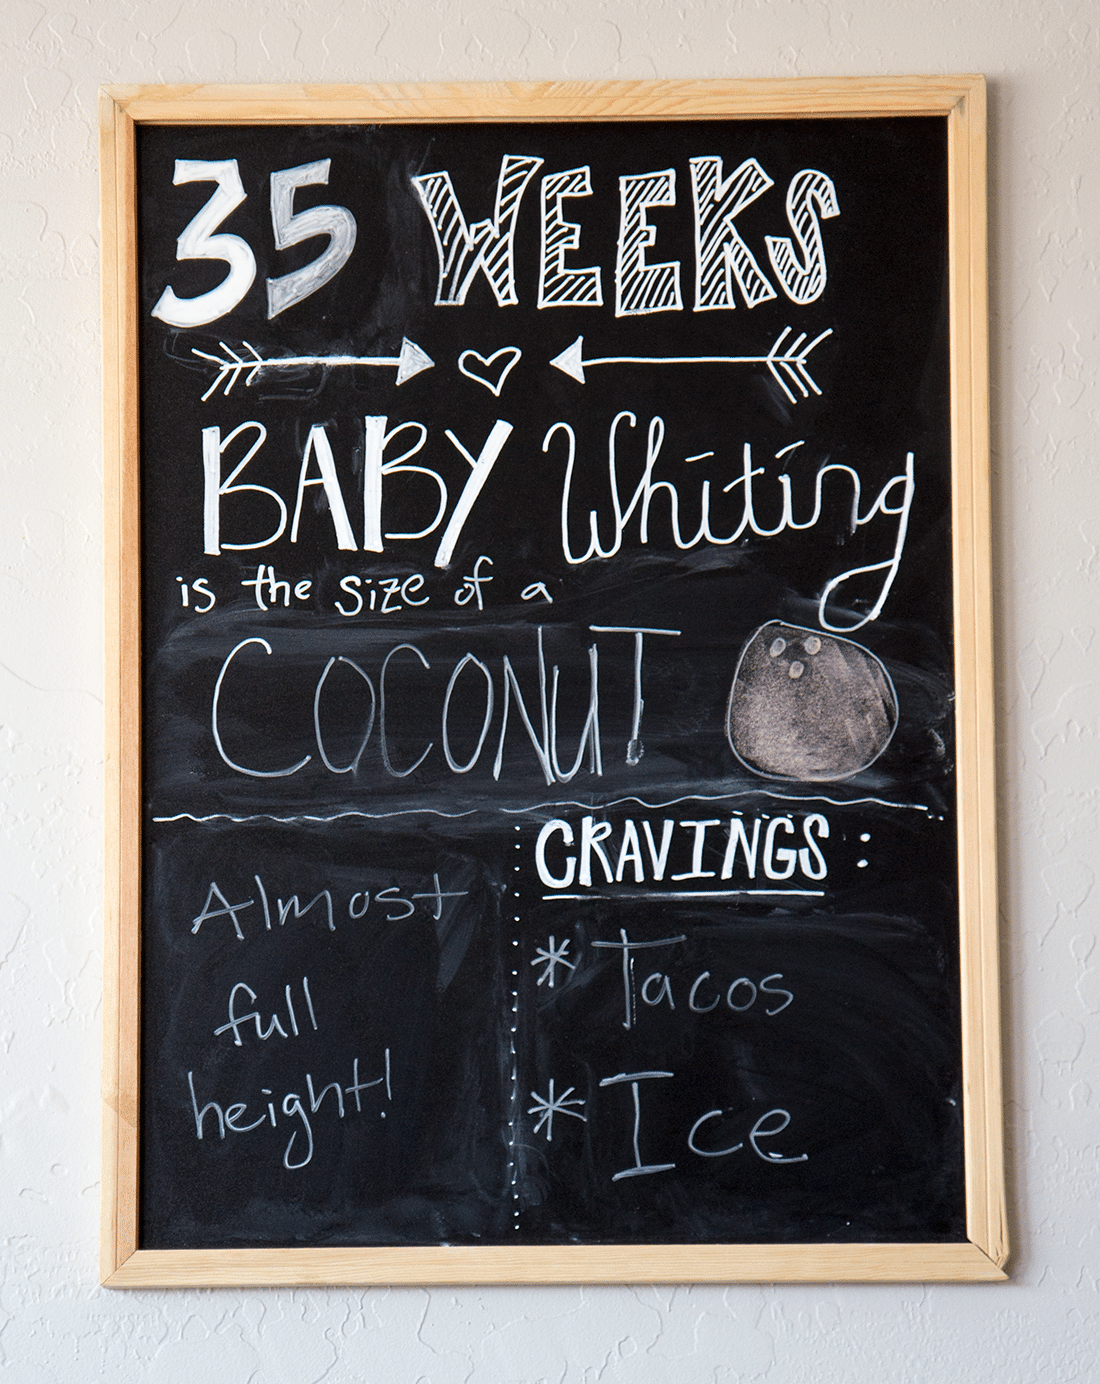 35 WEEKS
BABY Whiting
is the size of a
COCONUT
Almost
full
height!
CRAVINGS:
* Tacos
* Ice